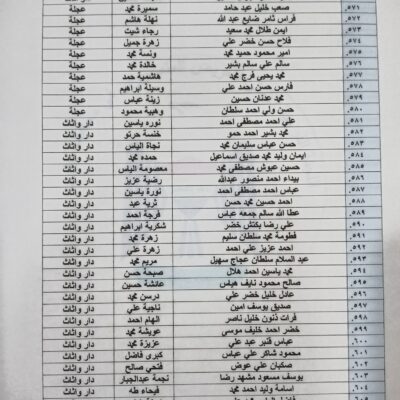 ٥٧١. صعب خليل عبد حامد سميرة محمد عجلة
٥٧٢. فراس ثامر ضايع عبد الله نهلة هاشم عجلة
٥٧٣. ايمن طلال محمد سعيد رجاء شيت عجلة
٥٧٤. فلاح حسن خضر علي زهرة جميل عجلة
٥٧٥. امير محمود حميد محمد ونسة محمد عجلة
٥٧٦. سالم علي سالم بشير خالدة محمد عجلة
٥٧٧. محمد يحيى فرج محمد هاشمية حمد عجلة
٥٧٨. فارس حسن احمد علي وسيلة ابراهيم عجلة
٥٧٩. محمد عدنان حسين زينة عباس عجلة
٥٨٠. حسن ولي احمد سلطان وهبية محمود عجلة
علي احمد مصطفى احمد نوره ياسين دار واثاث
محمد بشير احمد حمو خنسة حرتو دار واثاث
٥٨٣. حسن عباس سليمان محمد نجاة الياس دار واثاث
٥٨٤. ايمان وليد محمد صديق اسماعيل حمده محمد دار واثاث
٥٨٥. حسين عيوش مصطفى محمد معصومة الياس دار واثاث
٥٨٦. بيداء احمد منصور عبدالله رضية عزيز دار واثاث
٥٨٧. عباس احمد مصطفى احمد نورة ياسين دار واثاث
٥٨٨. احمد حسين محمد حسن ثرية عبد دار واثاث
٥٨٩. عطا الله سالم جمعه عباس فرجة احمد دار واثاث
٥٩٠. علي رضا بكتش خضر شكرية ابراهيم دار واثاث
٥٩١. فطومة محمد سلطان سليم زهرة محمد دار واثاث
٥٩٢. احمد عزيز علي احمد زهرة علي دار واثاث
٥٩٣. عبد السلام سلطان عجاج سهيل مريم محمد دار واثاث
٥٩٤. محمد ياسين احمد هلال صبيحة حسن دار واثاث
٥٩٥. صالح محمود نايف هباس عائشة حسين دار واثاث
٥٩٦. عادل خليل خضر علي درسن محمد دار واثاث
٥٩٧. صديق يوسف امين ناجية علي دار واثاث
٥٩٨. فرات ذنون خليل ناصر الهام احمد دار واثاث
٥٩٩. خضر احمد خليف موسى عويشة محمد دار واثاث
٦٠٠. عباس قنبر عبد علي عزيزة محمد دار واثاث
٦٠١. محمود شاكر علي عباس كبرى فاضل دار واثاث
٦٠٢. صكبان علي عوض فتحي صالح دار واثاث
٦٠٣. يوسف مسعود مشهد رضا نجمة عبدالجبار دار واثاث
٦٠٤. اسامة وليد احمد محمد فيحاء طه دار واثاث